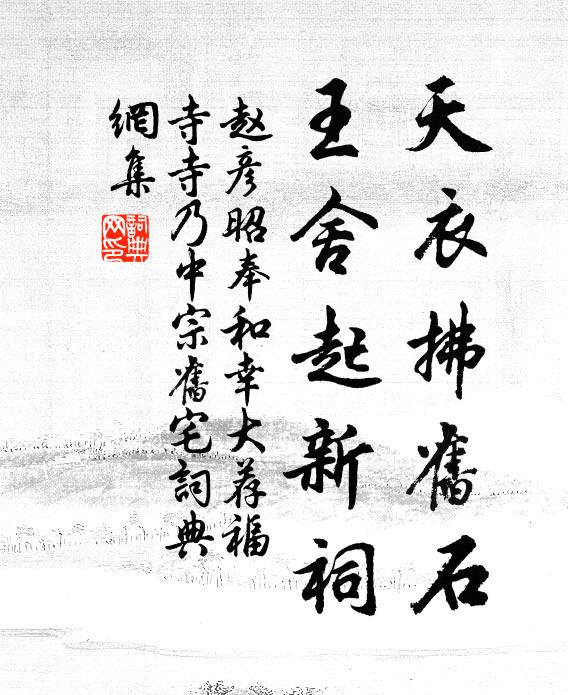 天衣拂舊石
王舍起新祠
赵彦昭奉和幸大荐福
寺寺乃中宗舊宅詞典
網集
詞典
网印